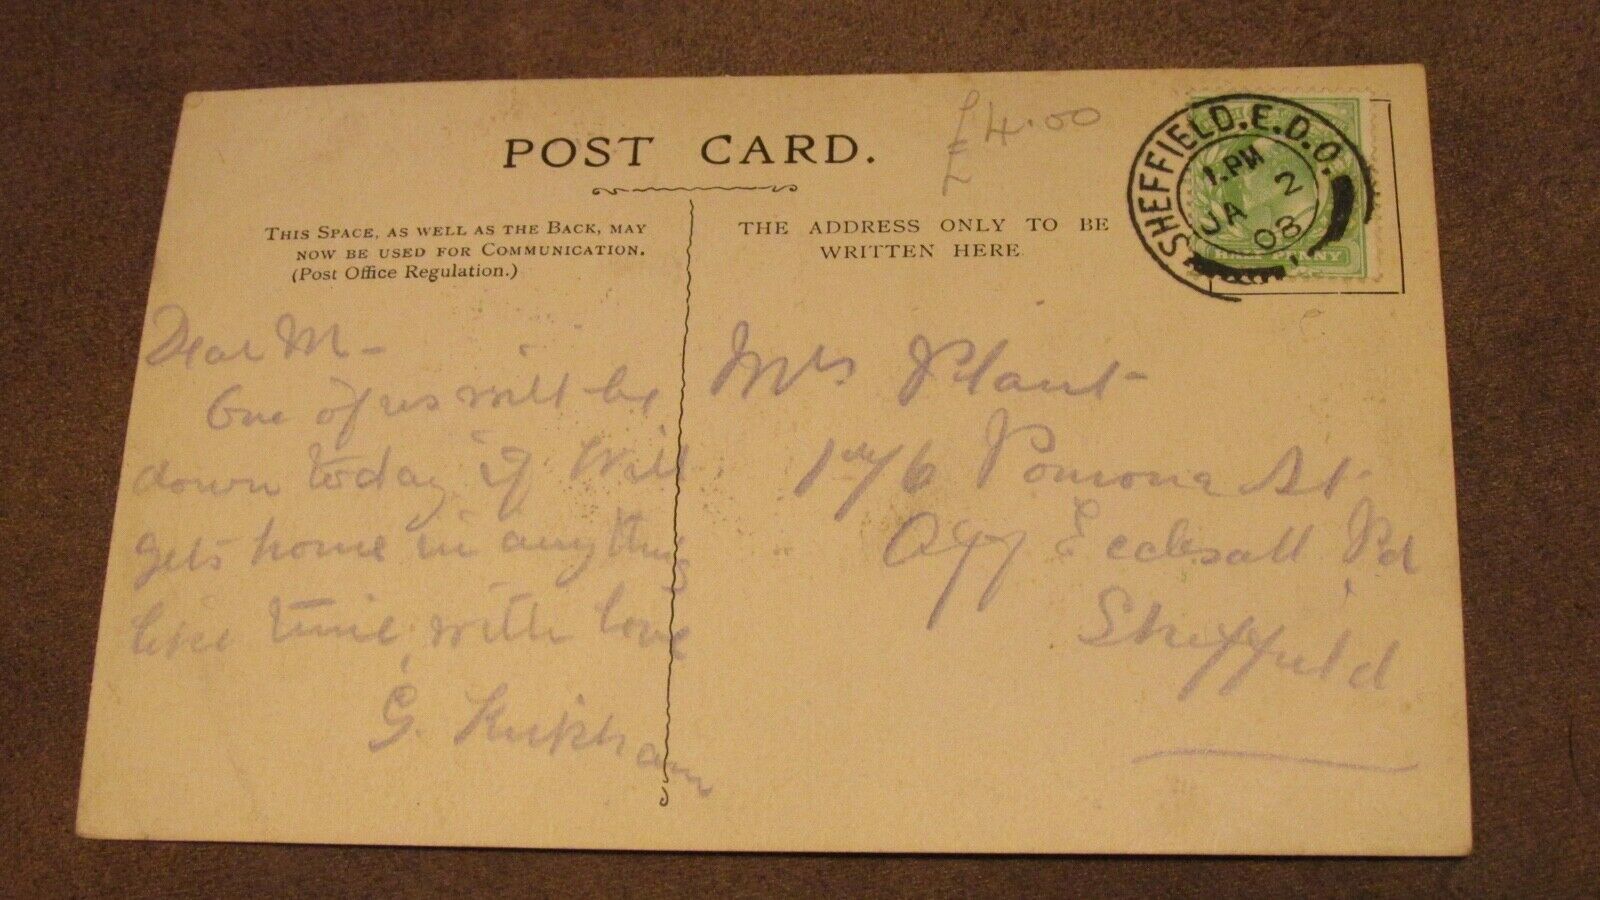 POST CARD.
£4.00
£
THIS SPACE, AS WELL AS THE BACK, MAY
NOW BE USED FOR COMMUNICATION.
(Post Office Regulation.)
THE ADDRESS ONLY TO BE
WRITTEN HERE
SHEFFIELD.E.D.O.
1.PM
JA 2
08
HALF PENNY
Dear M-
One of us will be
down today if Will
gets home in anything
like time, with love
G.
Mrs Plant
Pomona St
Off Ecclesall Rd
Sheffield